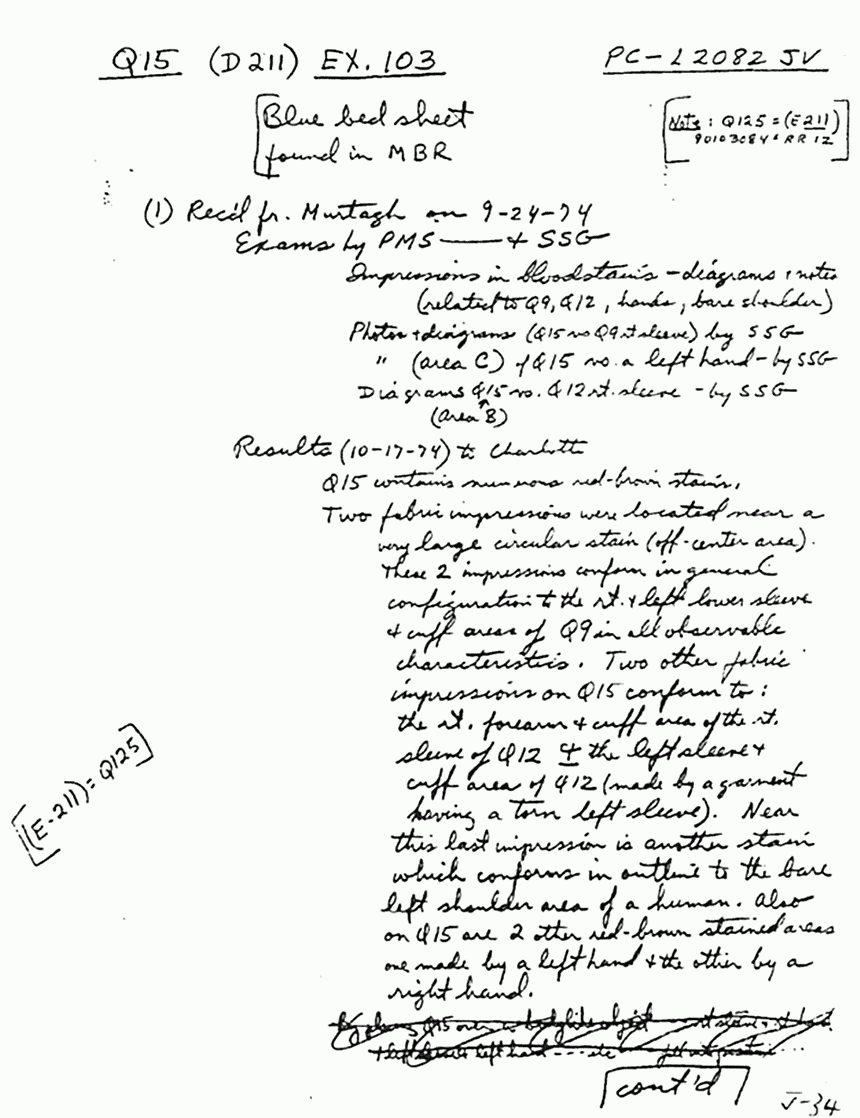 Q15 (D211) EX. 103 PC-L2082 JV
[Blue bed sheet
found in MBR
[Note: Q125 = (E211)
90103084 RR 12]
(1) Rec'd fr. Murtagh on 9-24-74
Exams by PMS — + SSG
Impressions in bloodstains - diagrams + notes
(related to Q9, Q12, hands, bare shoulder)
Photos + diagrams (Q15 vs Q9 rt sleeve) by SSG
" (area C) of Q15 vs. a left hand - by SSG
Diagrams Q15 vs. Q12 rt. sleeve - by SSG
(area B)
Results (10-17-74) to Charlotte
Q15 contains numerous red-brown stains.
Two fabric impressions were located near a
very large circular stain (off-center area).
These 2 impressions conform in general
configuration to the rt. + left lower sleeve
+ cuff areas of Q9 in all observable
characteristics. Two other fabric
impressions on Q15 conform to:
the rt. forearm + cuff area of the rt.
sleeve of Q12 + the left sleeve +
cuff area of Q12 (made by a garment
having a torn left sleeve). Near
this last impression is another stain
which conforms in outline to the bare
left shoulder area of a human. Also
on Q15 are 2 other red-brown stained areas
one made by a left hand + the other by a
right hand.
[(E-211) = Q125]
Q15 over
left hand
cont'd
J-34